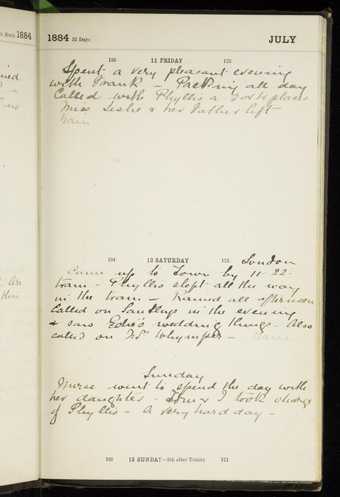 1884
1884 31 Days
JULY
11 FRIDAY
Spent a very pleasant evening
with Frank – Packing all day
Called with Phyllis a
Miss Leslie & her Father left
12 SATURDAY
London
Came up to Town by 11.22
train – Phyllis slept all the way
in the train – all afternoon
Called on in the evening
& saw wedding things. Also
called on Whymper –
Sunday
Nurse went to spend the day with
her daughter. I took charge
of Phyllis – A very hard day –
13 SUNDAY – 5th after Trinity